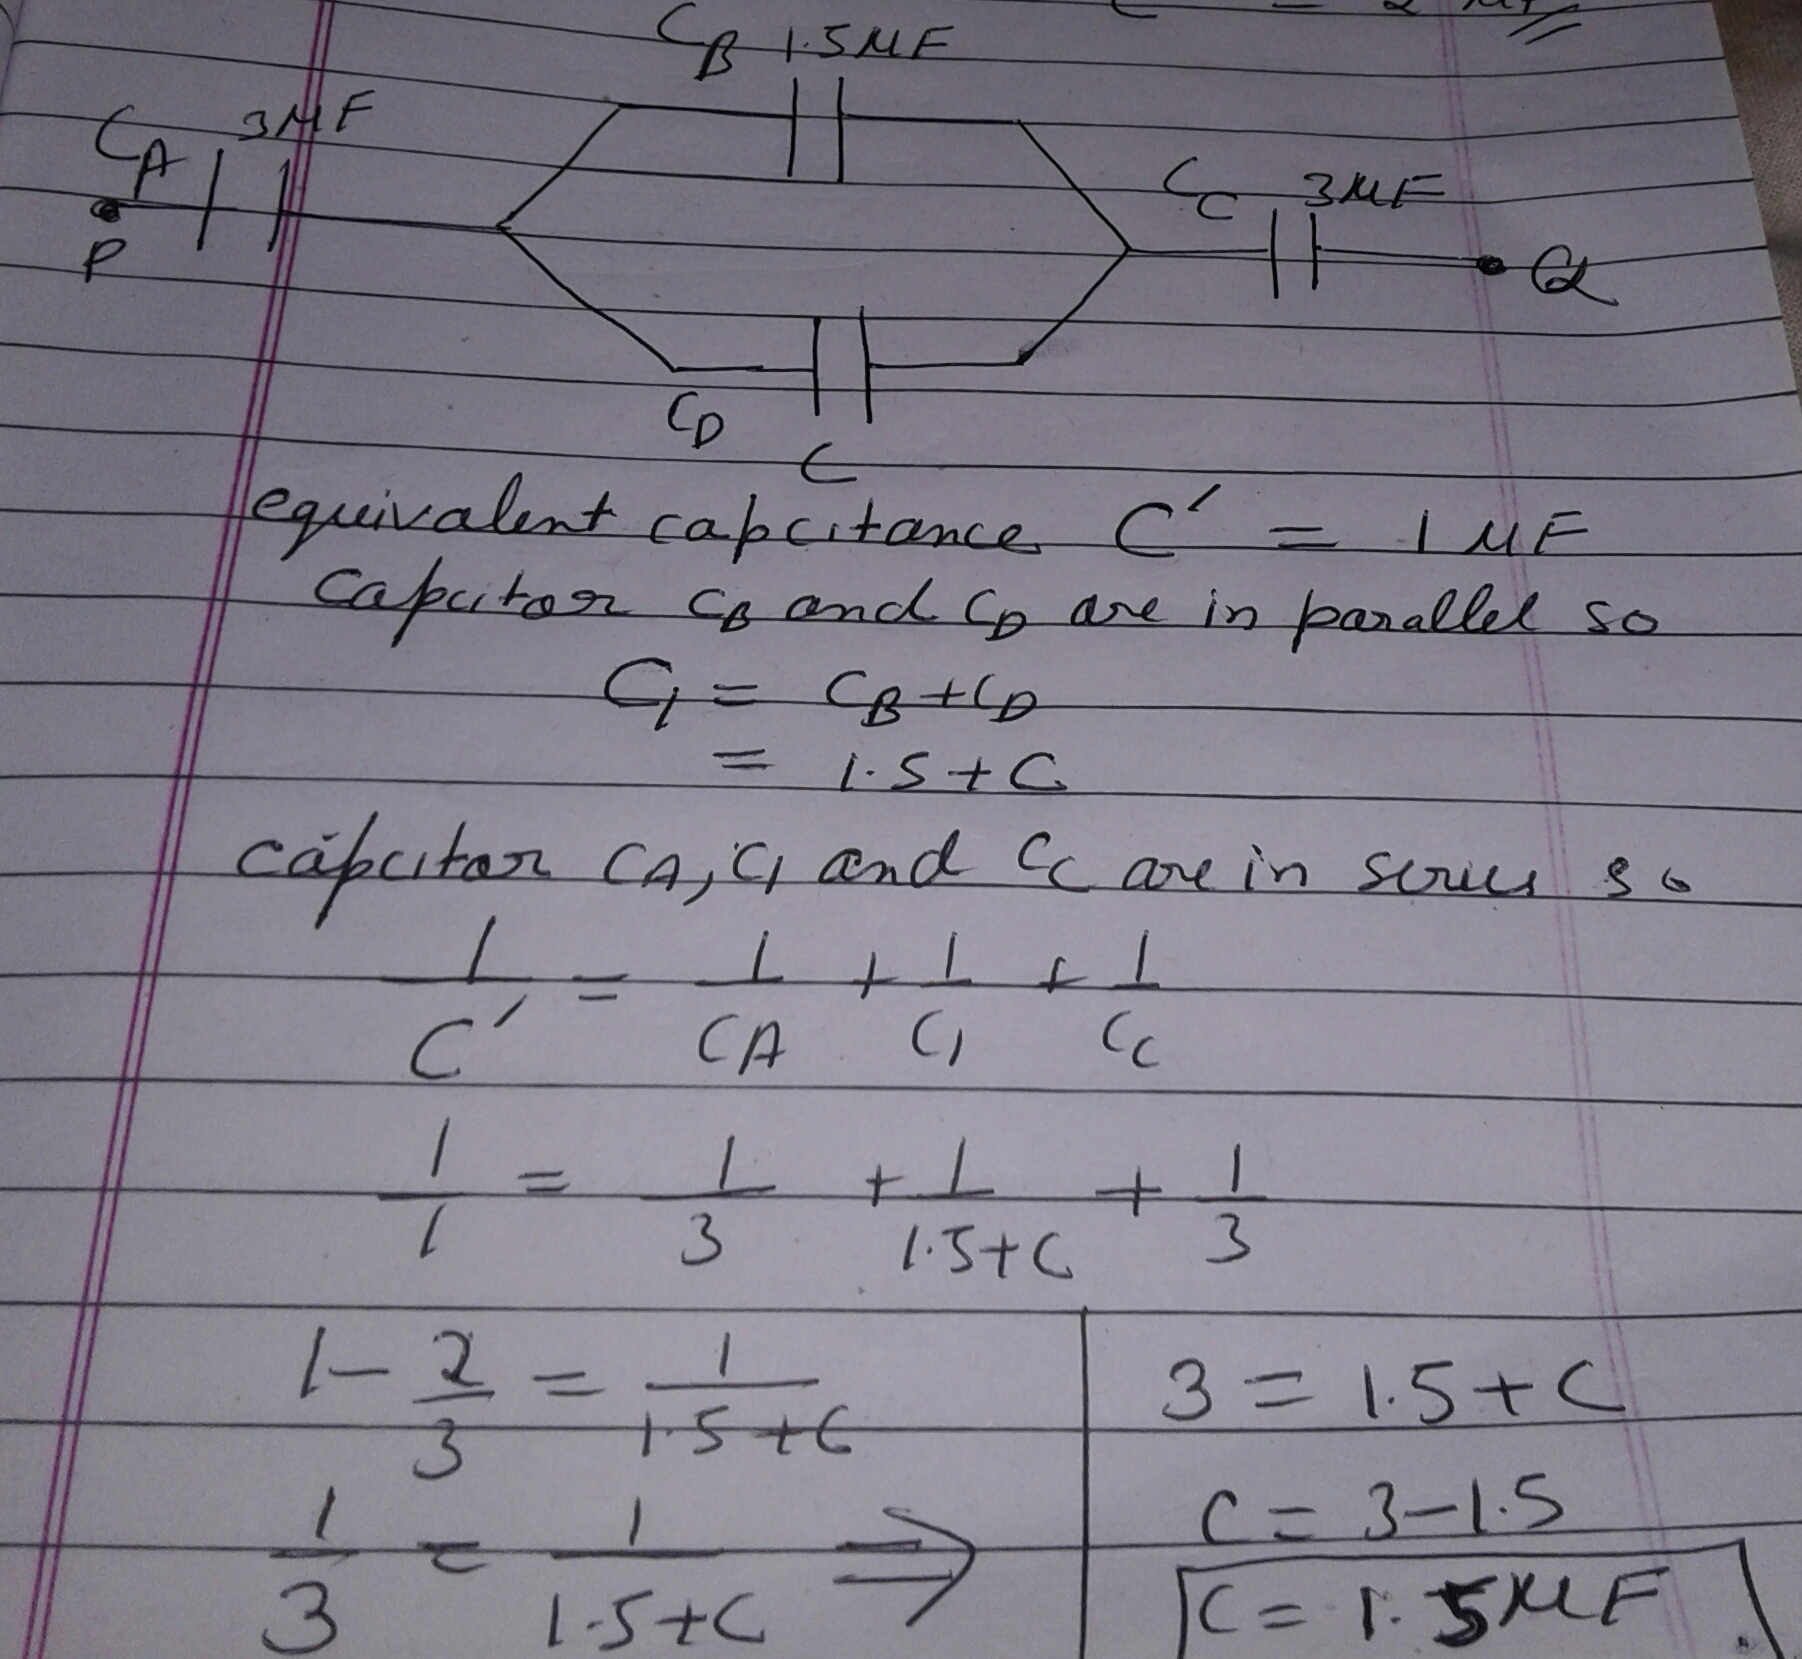 C = 2 μF
C_B 1.5 μF
C_A 3 μF
C_C 3 μF
P
Q
C_D
C
equivalent capcitance C' = 1 μF
Capcitor C_B and C_D are in parallel so
C_1 = C_B + C_D
= 1.5 + C
capcitor C_A, C_1 and C_C are in series so
1/C' = 1/C_A + 1/C_1 + 1/C_C
1/1 = 1/3 + 1/(1.5+C) + 1/3
1 - 2/3 = 1/(1.5+C)
1/3 = 1/(1.5+C) ⇒
3 = 1.5 + C
C = 3 - 1.5
C = 1.5 μF